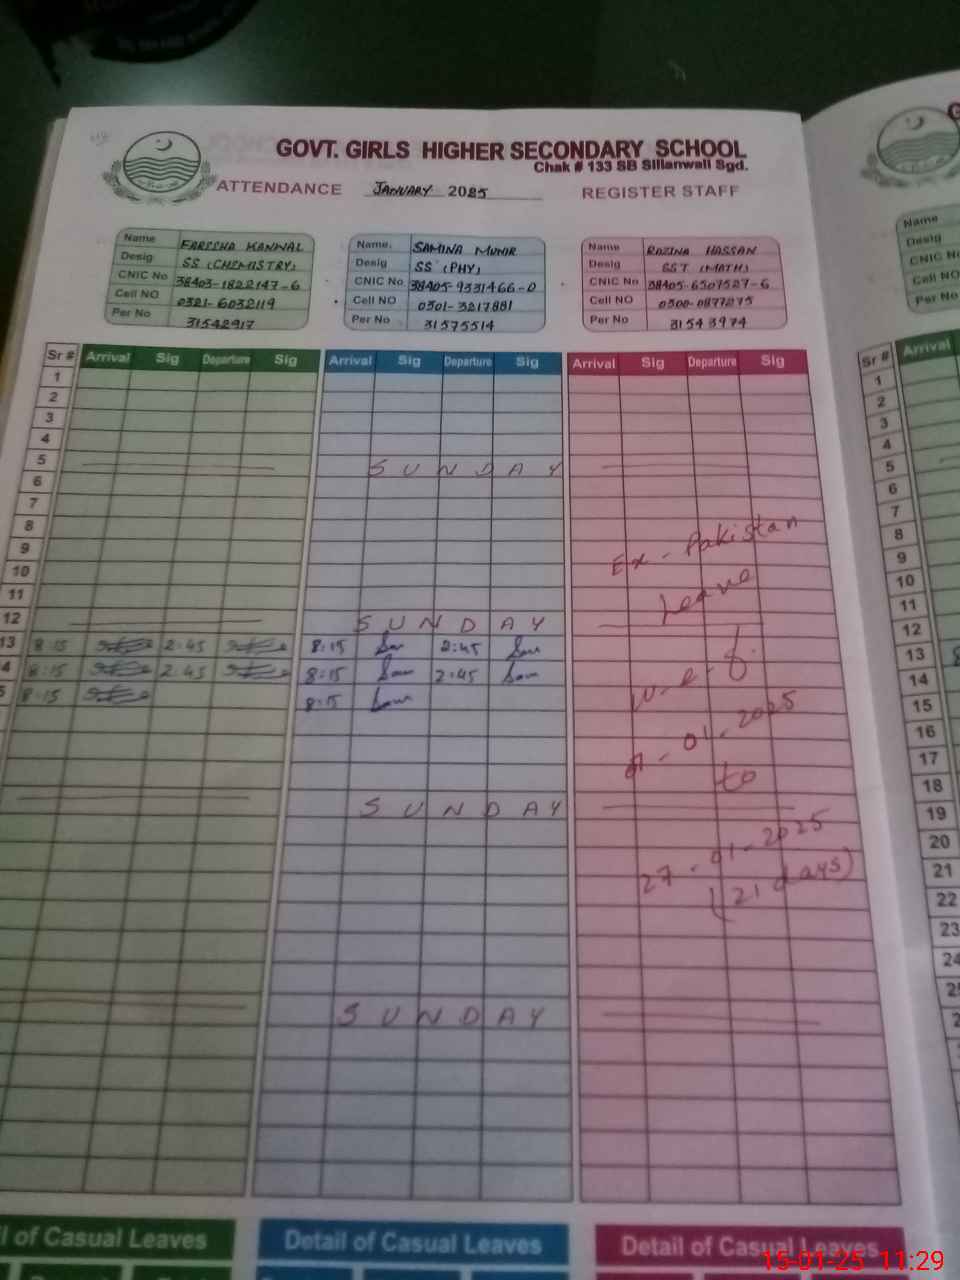 GOVT. GIRLS HIGHER SECONDARY SCHOOL
Chak # 133 SB Sillanwali Sgd.
ATTENDANCE JANUARY 2025 REGISTER STAFF
Name FARISHA KANWAL
Desig SS (CHEMISTRY)
CNIC No 38403-1822147-6
Cell NO 0321-6032119
Per No 31542917
Name. SAMINA MUNIR
Desig SS (PHY)
CNIC No 38405-9331466-0
Cell NO 0301-3217881
Per No 31575514
Name ROZINA HASSAN
Desig SST (MATH)
CNIC No 38405-6507527-6
Cell NO 0300-0877275
Per No 31543974
Sr # Arrival Sig Departure Sig Arrival Sig Departure Sig Arrival Sig Departure Sig
1
2
3
4
5 SUNDAY
6
7
8
9
10
11
12 SUNDAY
13 8:15 2:45 8:15 2:45
4 8:15 2:45 8:15 2:45
5 8:15 8:15
SUNDAY
SUNDAY
Ex-Pakistan
Leave
w-e-f.
01-2025
to
27-01-2025
(21 days)
l of Casual Leaves
Detail of Casual Leaves
Detail of Casual Leaves
Name
Desig
CNIC N
Cell NO
Per No
Sr # Arrival
1
2
3
4
5
6
7
8
9
10
11
12
13 8
14
15
16
17
18
19
20
21
22
23
24
15-01-25 11:29